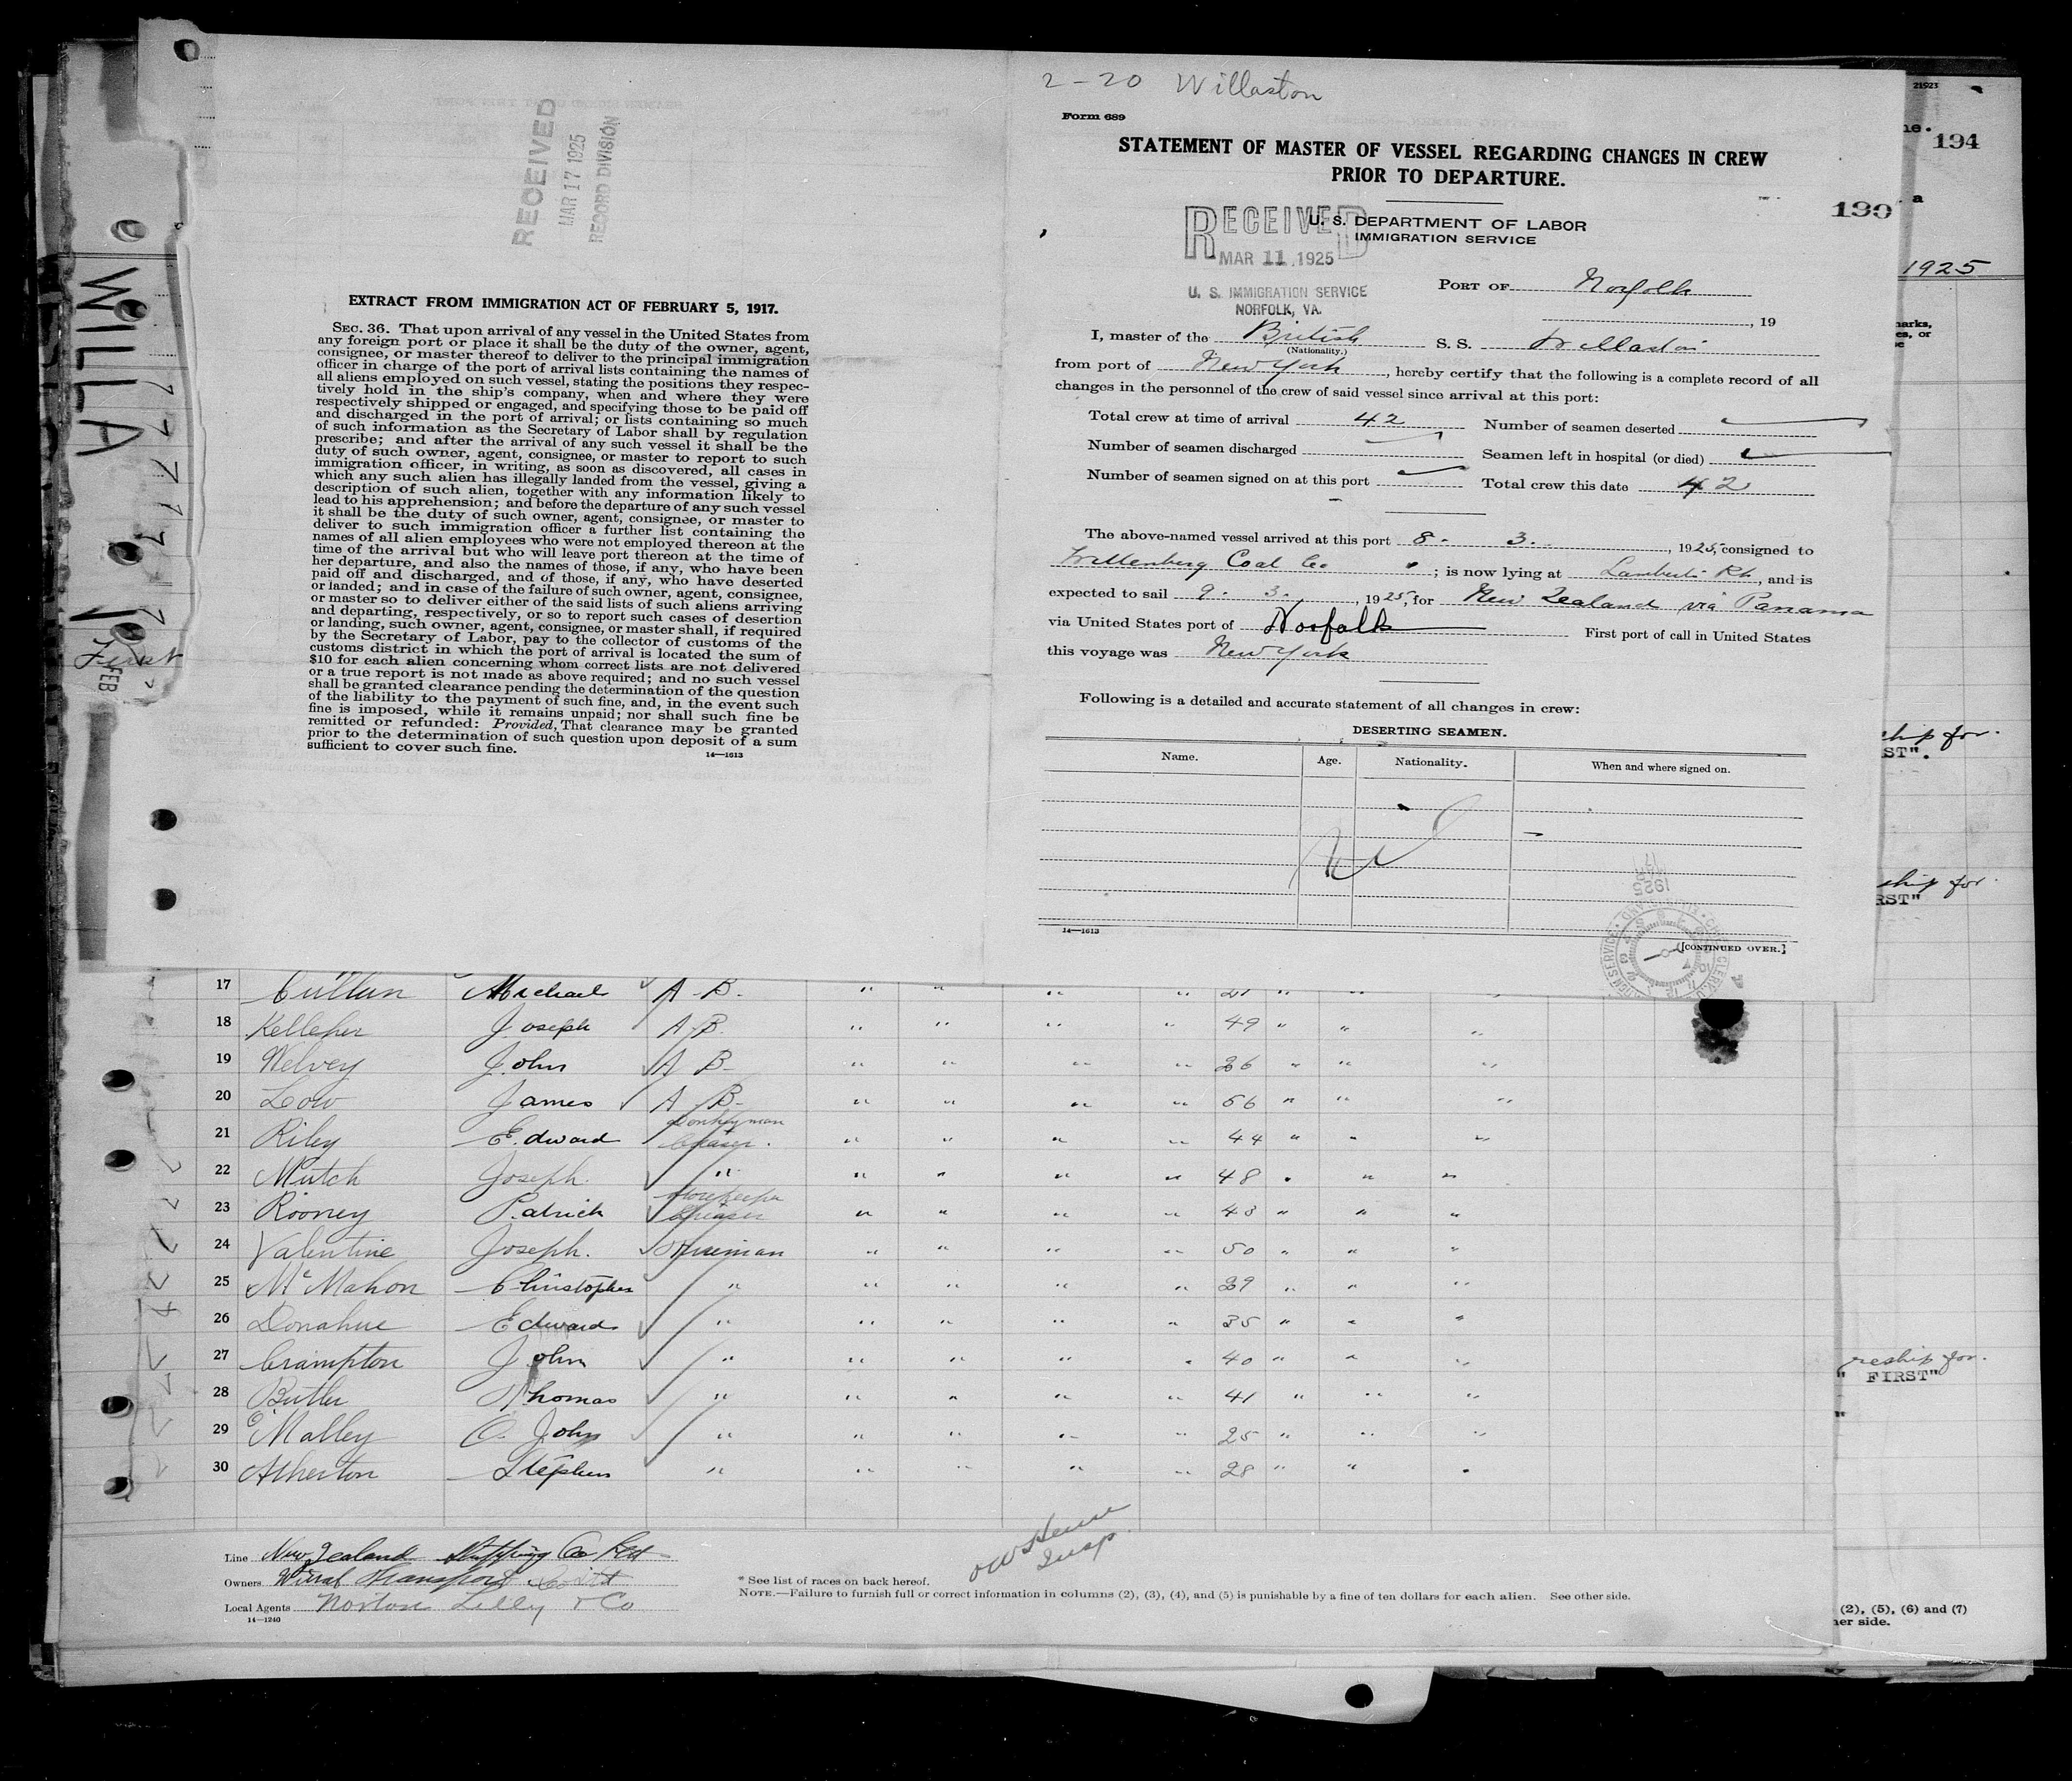 RECEIVED
MAR 17 1925
RECORD DIVISION
EXTRACT FROM IMMIGRATION ACT OF FEBRUARY 5, 1917.
SEC. 36. That upon arrival of any vessel in the United States from
any foreign port or place it shall be the duty of the owner, agent,
consignee, or master thereof to deliver to the principal immigration
officer in charge of the port of arrival lists containing the names of
all aliens employed on such vessel, stating the positions they respec-
tively hold in the ship's company, when and where they were
respectively shipped or engaged, and specifying those to be paid off
and discharged in the port of arrival; or lists containing so much
of such information as the Secretary of Labor shall by regulation
prescribe; and after the arrival of any such vessel it shall be the
duty of such owner, agent, consignee, or master to report to such
immigration officer, in writing, as soon as discovered, all cases in
which any such alien has illegally landed from the vessel, giving a
description of such alien, together with any information likely to
lead to his apprehension; and before the departure of any such vessel
it shall be the duty of such owner, agent, consignee, or master to
deliver to such immigration officer a further list containing the
names of all alien employees who were not employed thereon at the
time of the arrival but who will leave port thereon at the time of
her departure, and also the names of those, if any, who have been
paid off and discharged, and of those, if any, who have deserted
or landed; and in case of the failure of such owner, agent, consignee,
or master so to deliver either of the said lists of such aliens arriving
and departing, respectively, or so to report such cases of desertion
or landing, such owner, agent, consignee, or master shall, if required
by the Secretary of Labor, pay to the collector of customs of the
customs district in which the port of arrival is located the sum of
$10 for each alien concerning whom correct lists are not delivered
or a true report is not made as above required; and no such vessel
shall be granted clearance pending the determination of the question
of the liability to the payment of such fine, and, in the event such
fine is imposed, while it remains unpaid; nor shall such fine be
remitted or refunded: Provided, That clearance may be granted
prior to the determination of such question upon deposit of a sum
sufficient to cover such fine.
14—1613
WILLA
First
FEB
2-20 Willaston
Form 689
STATEMENT OF MASTER OF VESSEL REGARDING CHANGES IN CREW
PRIOR TO DEPARTURE.
U. S. DEPARTMENT OF LABOR
IMMIGRATION SERVICE
RECEIVED
MAR 11 1925
U. S. IMMIGRATION SERVICE
NORFOLK, VA.
190
PORT OF Norfolk
, 19
I, master of the British S. S. Willaston
(Nationality.)
from port of New York, hereby certify that the following is a complete record of all
changes in the personnel of the crew of said vessel since arrival at this port:
Total crew at time of arrival 42 Number of seamen deserted
Number of seamen discharged Seamen left in hospital (or died)
Number of seamen signed on at this port Total crew this date 42
The above-named vessel arrived at this port 8. 3. , 1925, consigned to
Wittenberg Coal Co ; is now lying at Lamberts Pt., and is
expected to sail 9. 3. , 1925, for New Zealand via Panama
via United States port of Norfolk First port of call in United States
this voyage was New York
Following is a detailed and accurate statement of all changes in crew:
DESERTING SEAMEN.
Name. Age. Nationality. When and where signed on.
14—1613
[CONTINUED OVER.]
21923
194
1925
ship for
ST".
ship for
RST"
reship for
" FIRST"
"
(2), (5), (6) and (7)
her side.
17 Cullun Michael A-B- " " " " 21 " " "
18 Kelleher Joseph A-B. " " " " 49 " " "
19 Welvey John A B- " " " " 36 " " "
20 Low James A-B- " " " " 56 " " "
21 Riley Edward Donkeyman Greaser. " " " " 44 " " "
22 Mutch Joseph. " " " " " 48 " " "
23 Rooney Patrick Storekeeper Greaser " " " " 43 " " "
24 Valentine Joseph. Fireman " " " " 50 " " "
25 McMahon Christopher " " " " " 39 " " "
26 Donahue Edward " " " " " 35 " " "
27 Crampton John " " " " " 40 " " "
28 Butler Thomas " " " " " 41 " " "
29 O'Malley O. John " " " " " 25 " " "
30 Atherton Stephen " " " " " 28 " " "
Line New Zealand Shipping Co Ltd
Owners Wirral Transport Co Ltd
Local Agents Norton Lilly & Co
14—1240
Insp
* See list of races on back hereof.
NOTE.—Failure to furnish full or correct information in columns (2), (3), (4), and (5) is punishable by a fine of ten dollars for each alien. See other side.